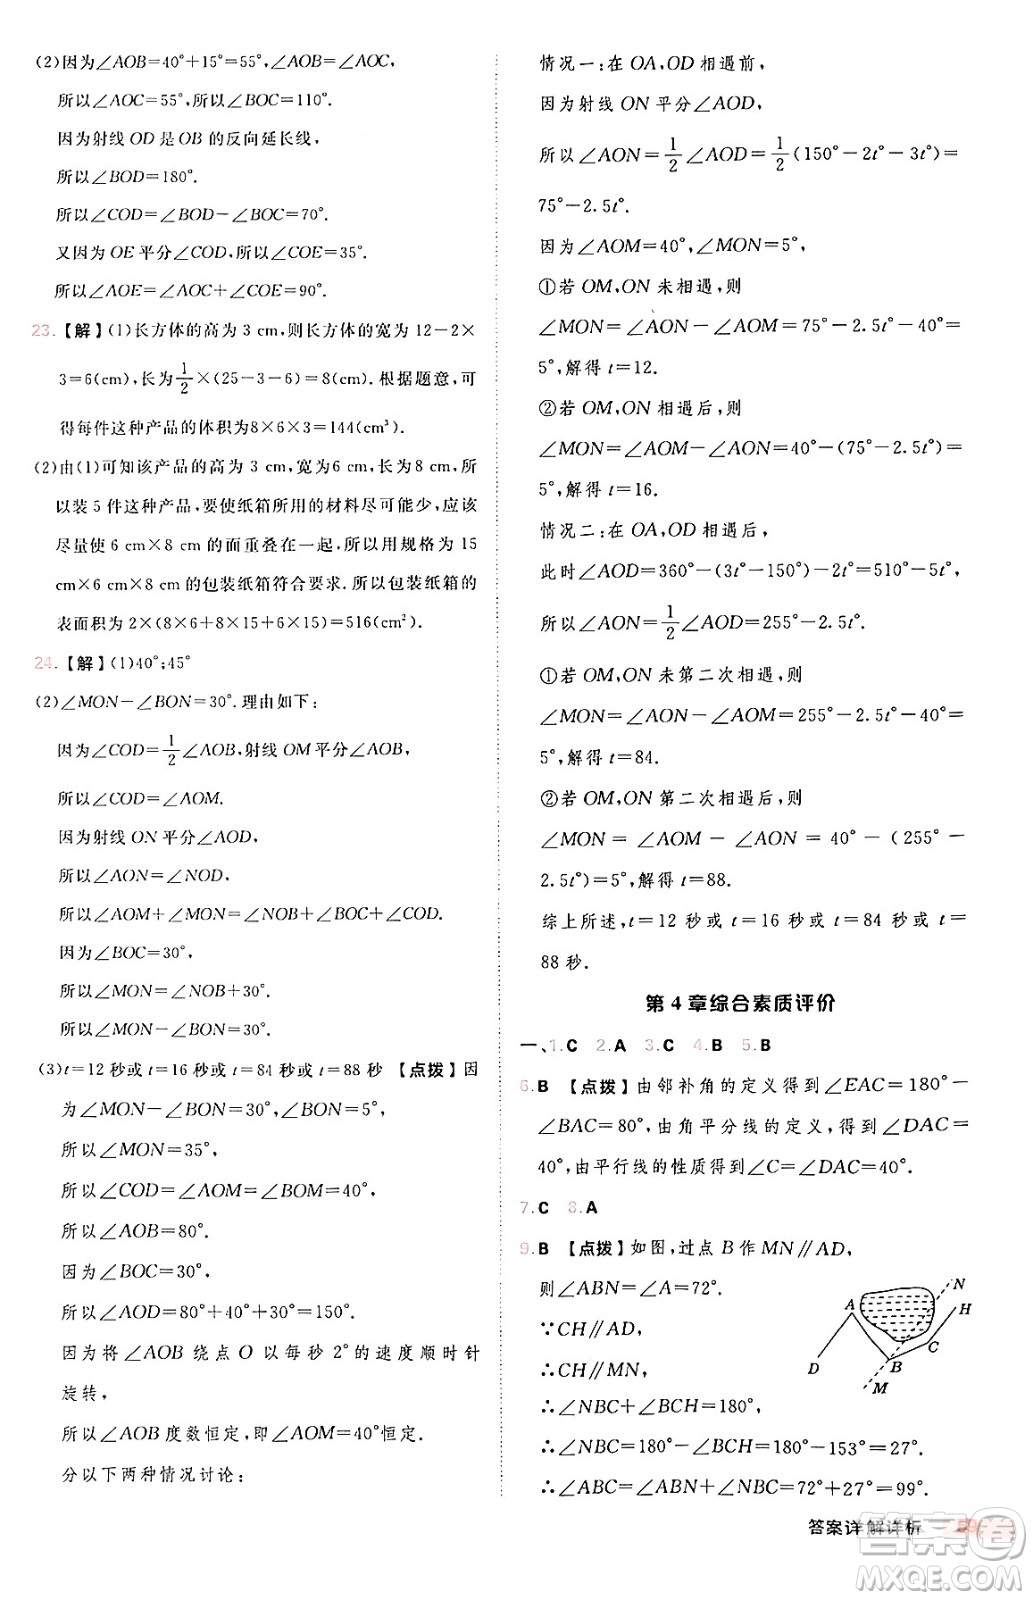 (2)因为∠AOB=40°+15°=55°,∠AOB=∠AOC,
所以∠AOC=55°,所以∠BOC=110°.
因为射线 OD 是 OB 的反向延长线,
所以∠BOD=180°.
所以∠COD=∠BOD-∠BOC=70°.
又因为 OE 平分∠COD,所以∠COE=35°.
所以∠AOE=∠AOC+∠COE=90°.
23.【解】(1)长方体的高为 3 cm,则长方体的宽为 12-2×
3=6(cm),长为1/2×(25-3-6)=8(cm).根据题意,可
得每件这种产品的体积为8×6×3=144(cm³).
(2)由(1)可知该产品的高为 3 cm,宽为6 cm,长为8 cm,所
以装 5 件这种产品,要使纸箱所用的材料尽可能少,应该
尽量使 6 cm×8 cm 的面重叠在一起,所以用规格为 15
cm×6 cm×8 cm 的包装纸箱符合要求.所以包装纸箱的
表面积为 2×(8×6+8×15+6×15)=516(cm²).
24.【解】(1)40°;45°
(2)∠MON-∠BON=30°.理由如下:
因为∠COD=1/2∠AOB,射线 OM平分∠AOB,
所以∠COD=∠AOM.
因为射线 ON 平分∠AOD,
所以∠AON=∠NOD,
所以∠AOM+∠MON=∠NOB+∠BOC+∠COD.
因为∠BOC=30°,
所以∠MON=∠NOB+30°,
所以∠MON-∠BON=30°.
(3)t=12 秒或 t=16 秒或 t=84 秒或 t=88 秒 【点拨】因
为∠MON-∠BON=30°,∠BON=5°,
所以∠MON=35°,
所以∠COD=∠AOM=∠BOM=40°,
所以∠AOB=80°.
因为∠BOC=30°,
所以∠AOD=80°+40°+30°=150°.
因为将∠AOB 绕点 O 以每秒 2°的速度顺时针
旋转,
所以∠AOB 度数恒定,即∠AOM=40°恒定.
分以下两种情况讨论:
情况一:在 OA,OD 相遇前,
因为射线 ON 平分∠AOD,
所以∠AON=1/2∠AOD=1/2(150°-2t°-3t°)=
75°-2.5t°.
因为∠AOM=40°,∠MON=5°,
①若 OM,ON 未相遇,则
∠MON=∠AON-∠AOM=75°-2.5t°-40°=
5°,解得 t=12.
②若 OM,ON 相遇后,则
∠MON=∠AOM-∠AON=40°-(75°-2.5t°)=
5°,解得 t=16.
情况二:在 OA,OD 相遇后,
此时∠AOD=360°-(3t°-150°)-2t°=510°-5t°,
所以∠AON=1/2∠AOD=255°-2.5t°.
①若 OM,ON 未第二次相遇,则
∠MON=∠AON-∠AOM=255°-2.5t°-40°=
5°,解得 t=84.
②若 OM,ON 第二次相遇后,则
∠MON=∠AOM-∠AON=40°-(255°-
2.5t°)=5°,解得 t=88.
综上所述,t=12 秒或 t=16 秒或 t=84 秒或 t=
88 秒.
第 4 章综合素质评价
一、1.C 2.A 3.C 4.B 5.B
6.B 【点拨】由邻补角的定义得到∠EAC=180°-
∠BAC=80°,由角平分线的定义,得到∠DAC=
40°,由平行线的性质得到∠C=∠DAC=40°.
7.C 8.A
9.B 【点拨】如图,过点 B 作 MN∥AD,
则∠ABN=∠A=72°.
∵CH∥AD,
∴CH∥MN,
∴∠NBC+∠BCH=180°,
∴∠NBC=180°-∠BCH=180°-153°=27°.
∴∠ABC=∠ABN+∠NBC=72°+27°=99°.
N
A
H
C
D
B
M
答案详解详析
答案圈
MXQE.COM